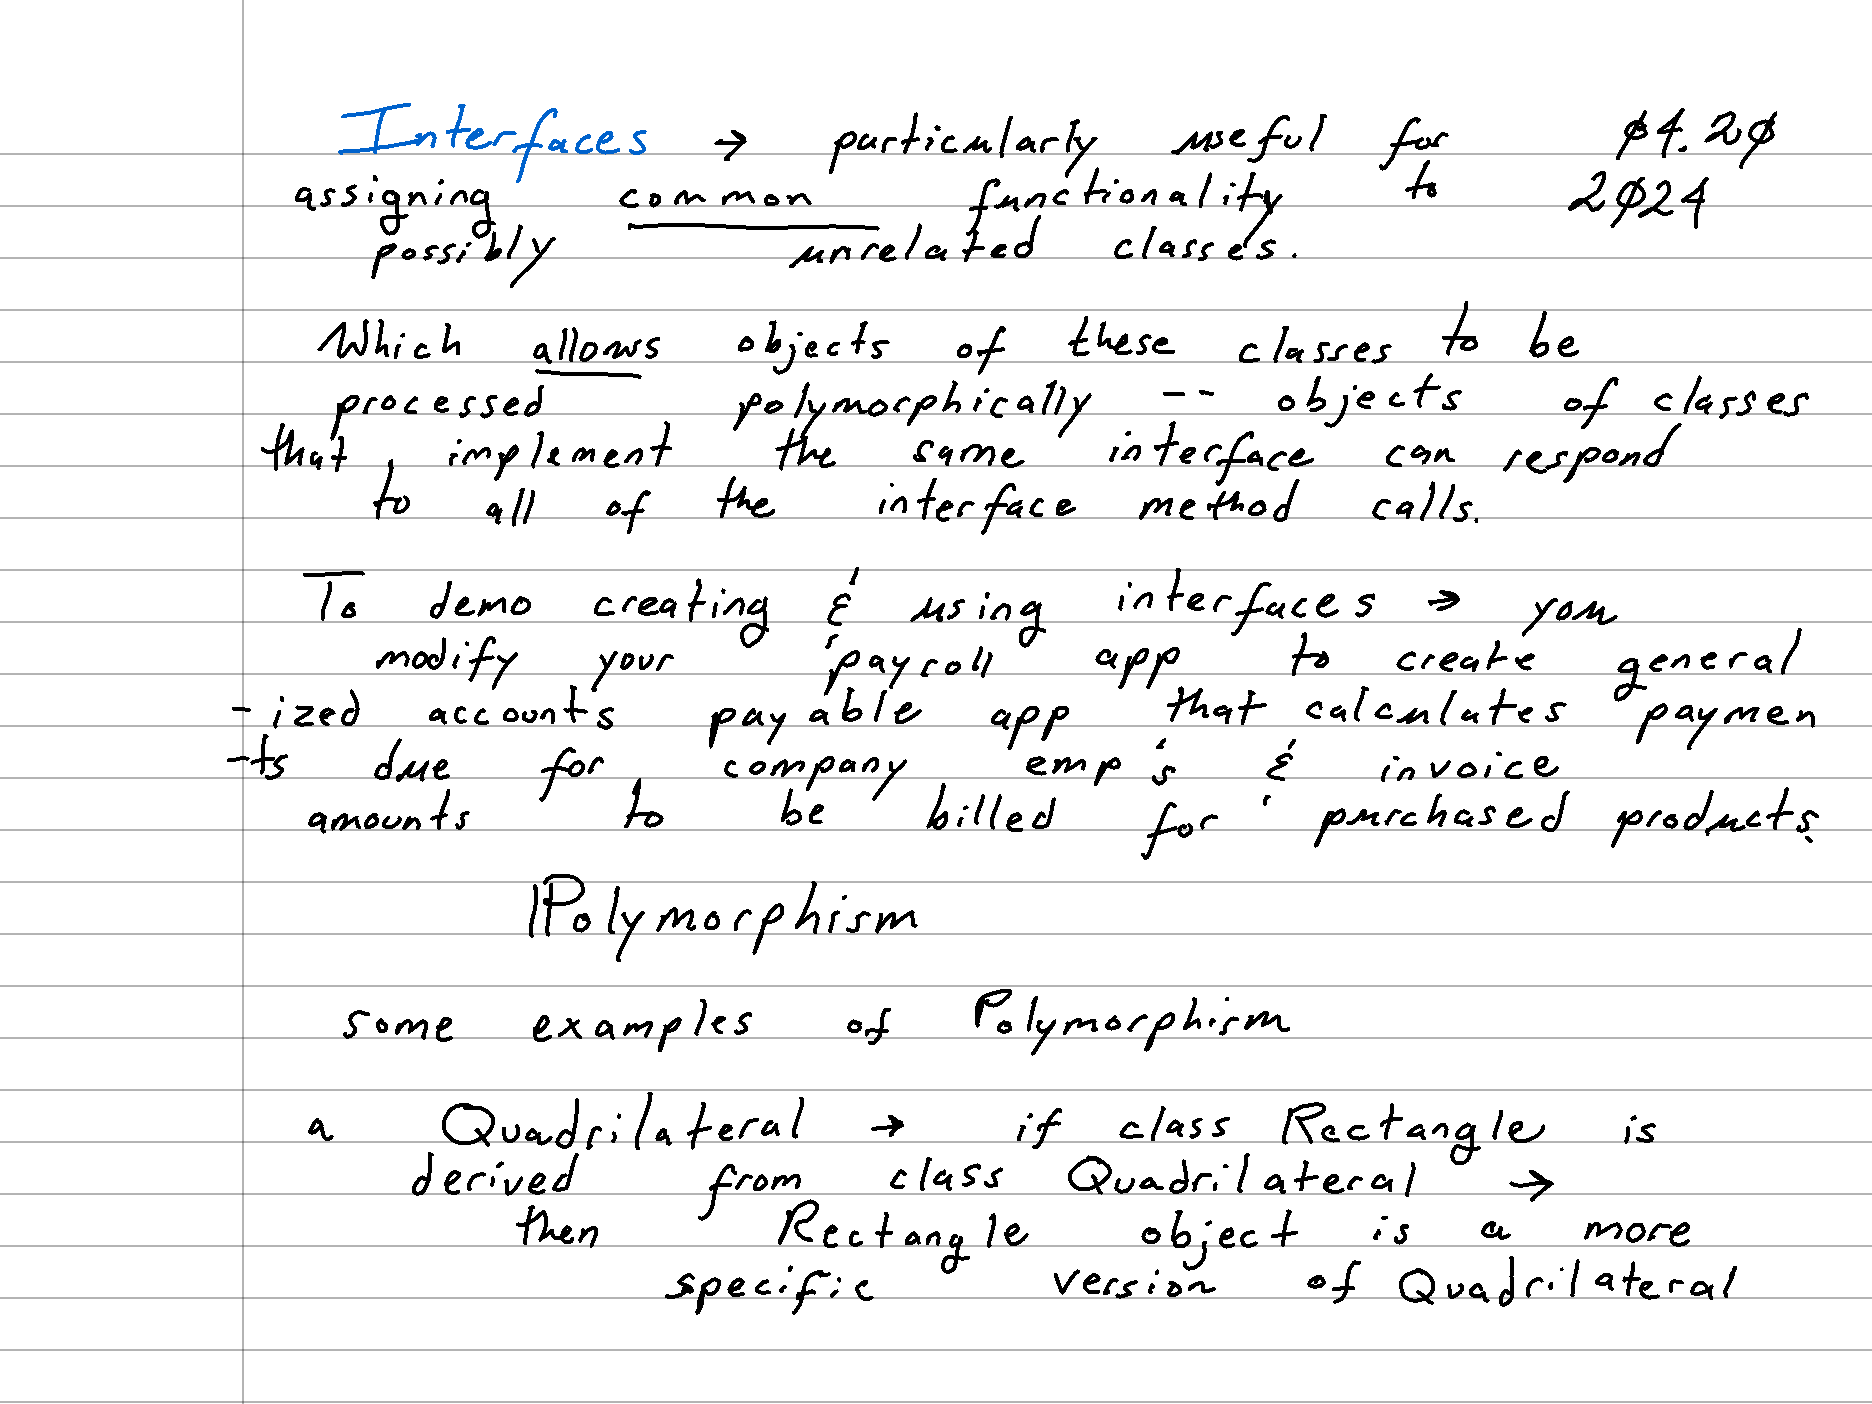 Interfaces → particularly useful for 04.20
assigning common functionality to 2024
possibly unrelated classes.
Which allows objects of these classes to be
processed polymorphically -- objects of classes
that implement the same interface can respond
to all of the interface method calls.
To demo creating & using interfaces → you
modify your payroll app to create general
-ized accounts payable app that calculates paymen
-ts due for company emp's & invoice
amounts to be billed for purchased products.
Polymorphism
some examples of Polymorphism
a Quadrilateral → if class Rectangle is
derived from class Quadrilateral →
then Rectangle object is a more
specific version of Quadrilateral